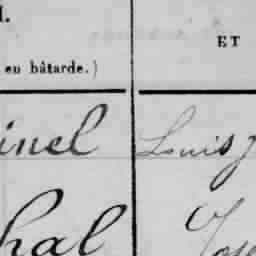 l.
ET
en bâtarde.)
inel Louis J
hal Jose